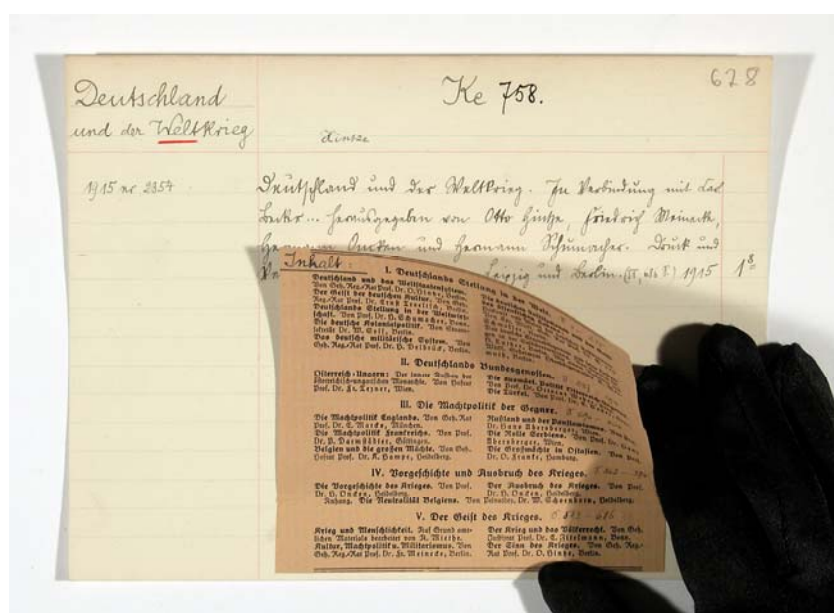 Deutschland
und der Weltkrieg
Ke 758.
678
Hintze
1915 nr 2354
Deutschland und der Weltkrieg. In Verbindung mit Carl
Becker... herausgegeben von Otto Hintze, Friedrich Meinecke,
Hermann Oncken und Hermann Schumacher. Druck und
Leipzig und Berlin. 1915
1 8°
Inhalt:
I. Deutschlands Stellung in der Welt.
Deutschland und das Weltstaatensystem.
Von Geh. Reg.-Rat Prof. Dr. O. Hintze, Berlin.
Der Geist der deutschen Kultur. Von Geh.
Reg.-Rat Prof. Dr. Ernst Troeltsch, Berlin.
Deutschlands Stellung in der Weltwirt-
schaft. Von Prof. Dr. H. Schumacher, Bonn.
Die deutsche Kolonialpolitik. Von Staats-
sekretär Dr. W. Solf, Berlin.
Das deutsche militärische System. Von
Geh. Reg.-Rat Prof. Dr. H. Delbrück, Berlin.
II. Deutschlands Bundesgenossen.
Österreich-Ungarn: Der innere Aufbau der
österreichisch-ungarischen Monarchie. Von Hofrat
Prof. Dr. Fr. Tezner, Wien.
Die Türkei. Von Prof.
III. Die Machtpolitik der Gegner.
Die Machtpolitik Englands. Von Geh. Rat
Prof. Dr. E. Marcks, München.
Die Machtpolitik Frankreichs. Von Prof.
Dr. P. Darmstädter, Göttingen.
Belgien und die großen Mächte. Von Geh.
Hofrat Prof. Dr. K. Hampe, Heidelberg.
Rußland und der Panslawismus. Von
Dr. Hans Übersberger, Wien.
Die Rolle Serbiens. Von Prof. Dr.
Übersberger, Wien.
Die Großmächte in Ostasien. Von Prof.
Dr. O. Franke, Hamburg.
IV. Vorgeschichte und Ausbruch des Krieges.
Die Vorgeschichte des Krieges. Von Prof.
Dr. H. Oncken, Heidelberg.
Der Ausbruch des Krieges. Von Prof.
Dr. H. Oncken, Heidelberg.
Anhang. Die Neutralität Belgiens. Von Privatdoz. Dr. W. Schoenborn, Heidelberg.
V. Der Geist des Krieges.
Krieg und Menschlichkeit. Auf Grund amt-
lichen Materials bearbeitet von A. Miethe.
Kultur, Machtpolitik u. Militarismus. Von
Geh. Reg.-Rat Prof. Dr. Fr. Meinecke, Berlin.
Der Krieg und das Völkerrecht. Von Geh.
Justizrat Prof. Dr. E. Zitelmann, Bonn.
Der Sinn des Krieges. Von Geh. Reg.-
Rat Prof. Dr. O. Hintze, Berlin.